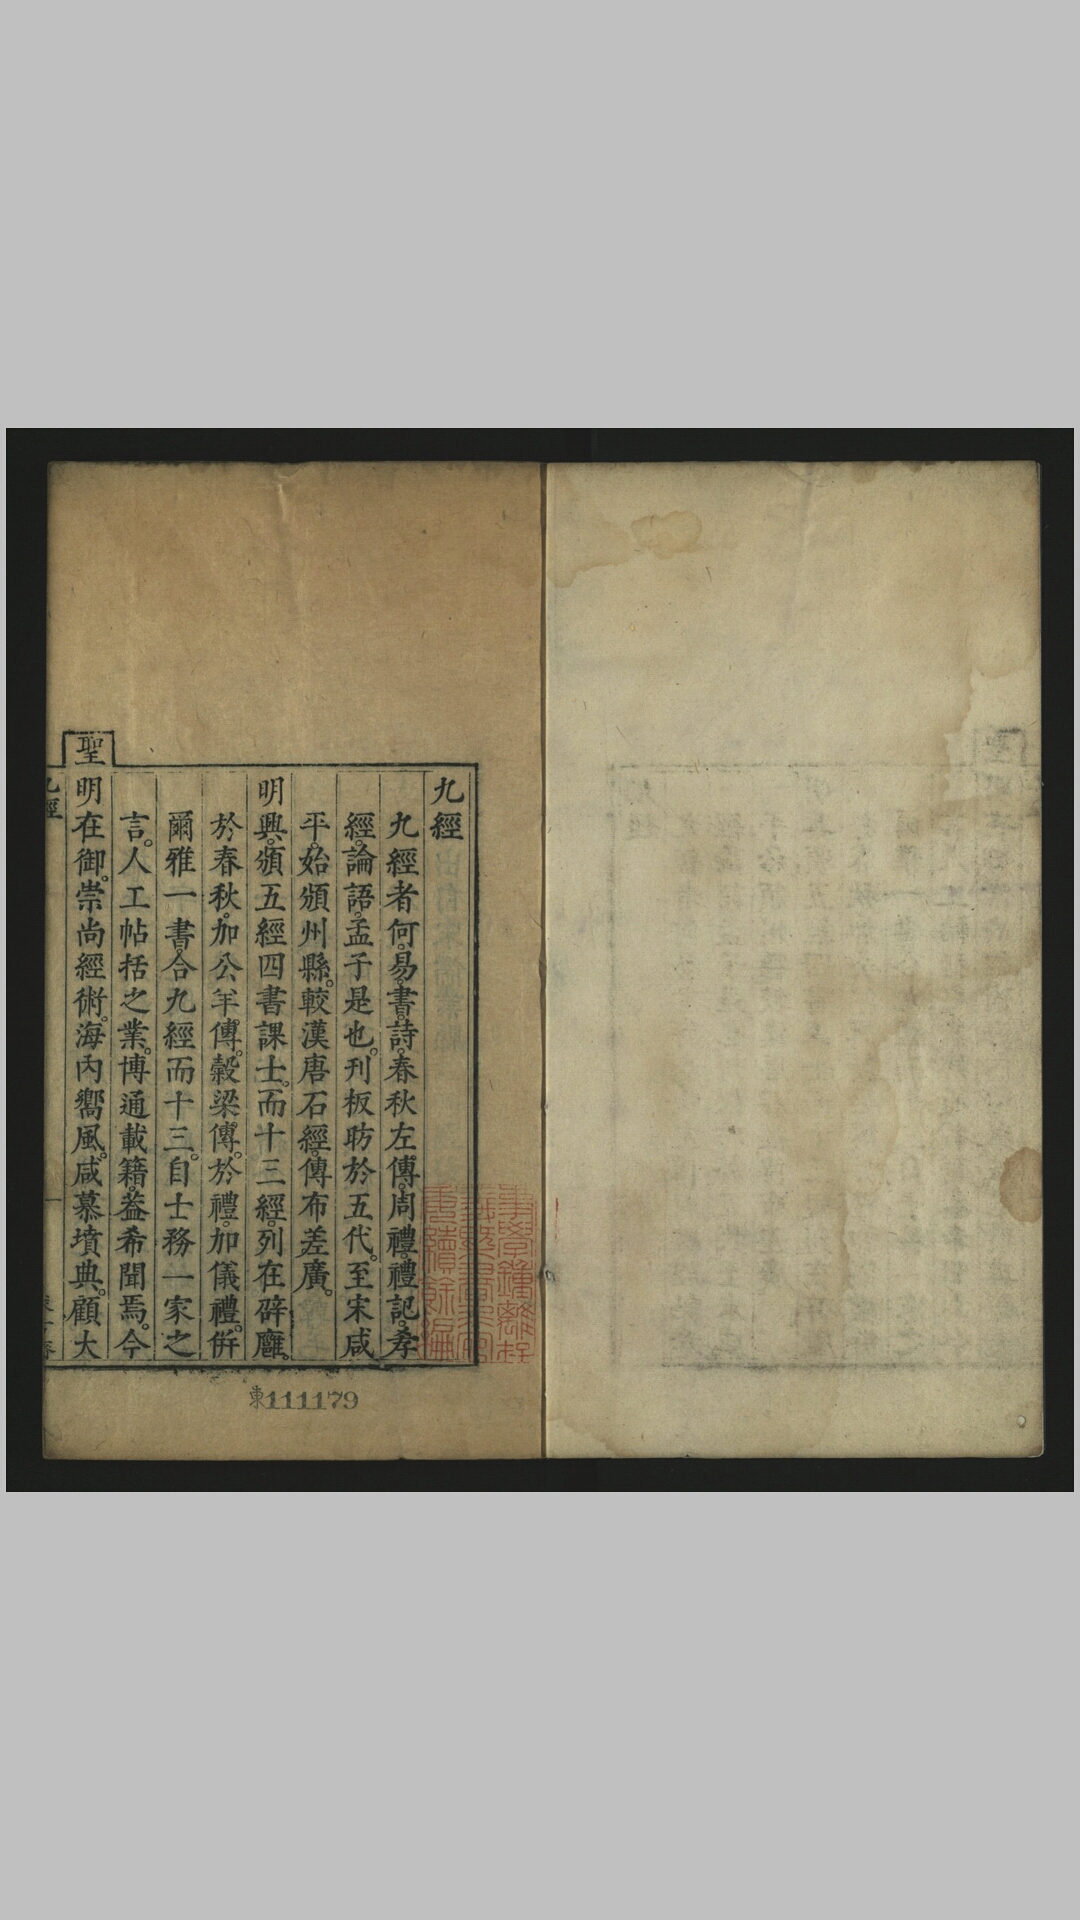 九經
九經者何。易。書。詩。春秋左傳。周禮。禮記。孝
經。論語。孟子是也。刊板昉於五代。至宋咸
平。始頒州縣。較漢唐石經。傳布差廣。
明興。頒五經四書課士。而十三經。列在辟廱。
於春秋。加公羊傳。穀梁傳。於禮。加儀禮。併
爾雅一書。合九經而十三。自士務一家之
言。人工帖括之業。博通載籍。葢希聞焉。今
聖
明在御。崇尚經術。海內嚮風。咸慕墳典。顧大
九經
一
東111179